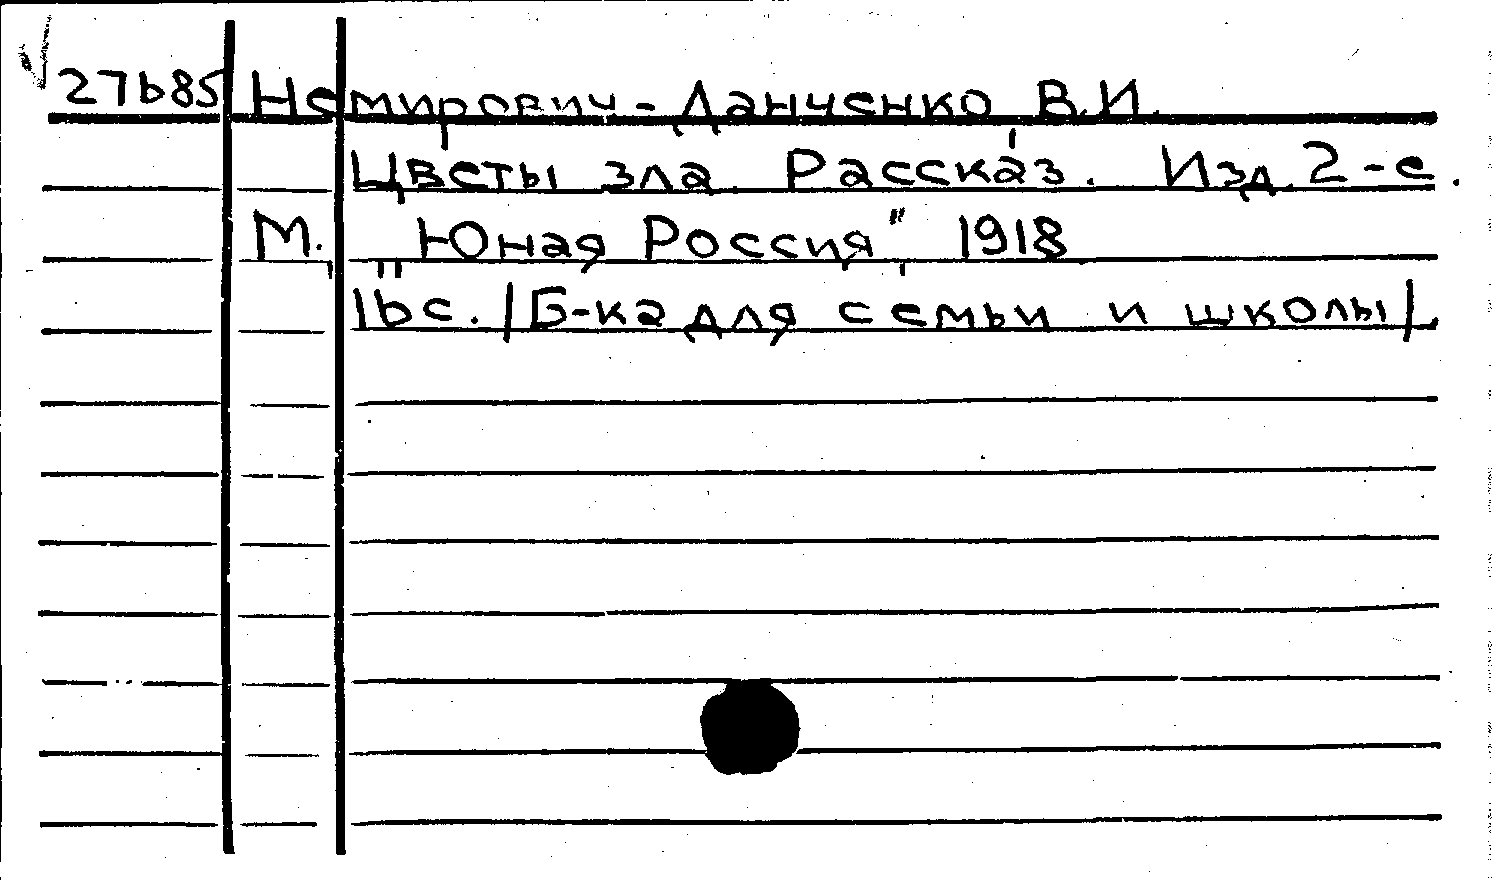 27685 Немирович-Данченко В.И.
Цветы зла. Рассказ. Изд. 2-е.
М., "Юная Россия", 1918
16с. /Б-ка для семьи и школы/.